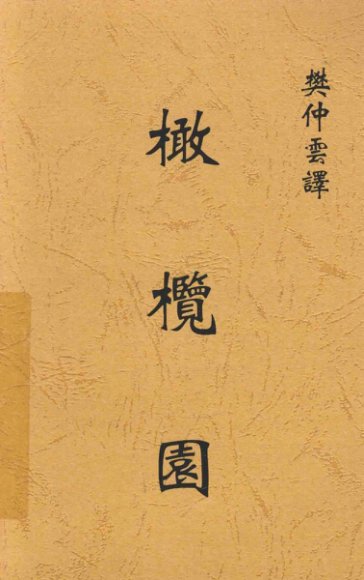 樊仲雲譯
橄欖園